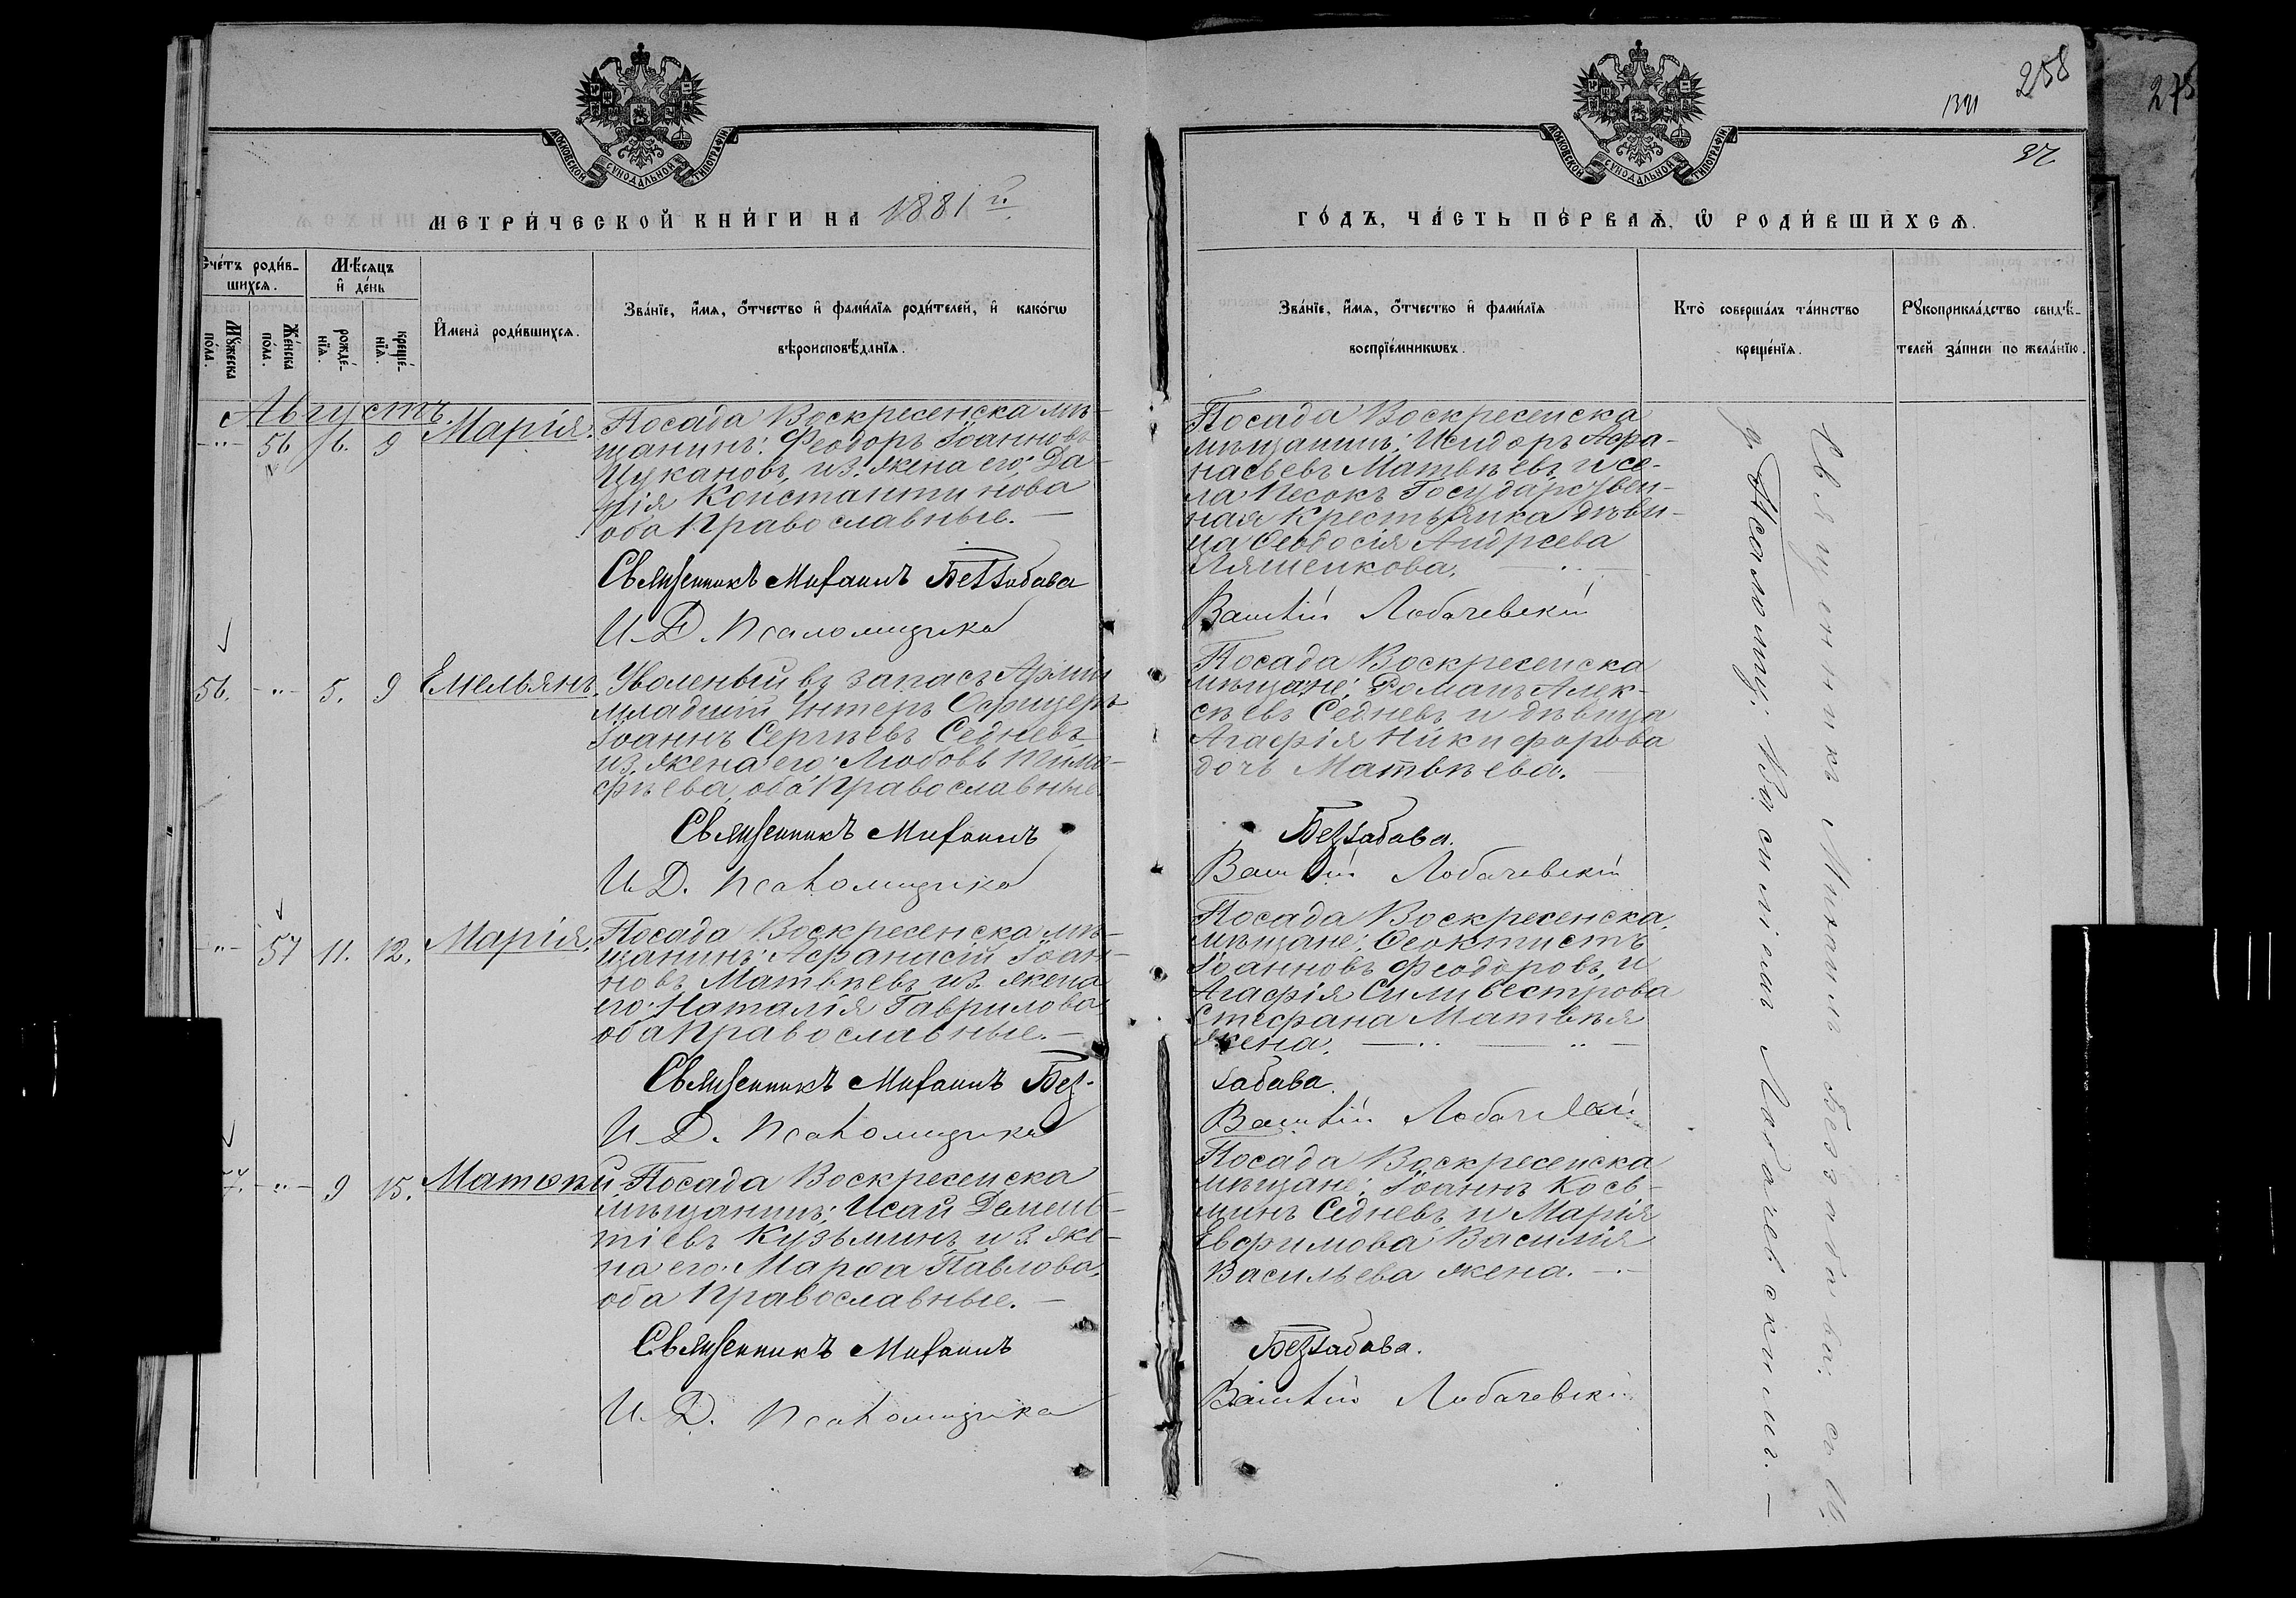 МОСКОВСКОЙ СѴНОДАЛЬНОЙ ТИПОГРАФІИ
МЕТРИ́ЧЕСКОЙ КНИ́ГИ НА 1881 г.
Счéтъ роди́в-
шихсѧ.
Мѣ́сѧцъ
и҆ де́нь
Мꙋ́жеска
по́ла.
Же́нска
по́ла.
рожде́-
нїѧ.
креще́-
нїѧ.
И҆мена̀ роди́вшихсѧ.
Зва́нїе, и҆́мѧ, ѻ҆́тчество и҆ фами́лїѧ роди́телей, и҆ како́гѡ
вѣроисповѣ́данїѧ.
Августъ.
-"- 56 6. 9 Марія. Посада Воскресенска мѣ-
щанинъ: Феодоръ Іоанновъ
Цукановъ, из. жена его: Да-
рія Константинова
оба Православные. —
Священникъ Михаилъ Беззабава
И. Д. Псаломщика
56. -"- 5. 9 Емельянъ. Уволеный въ запасъ Арміи
младшій Унтеръ Офицеръ
Іоаннъ Сергѣевъ Седневъ
из. жена его: Любовь
оба Православные.
Священникъ Михаилъ
И. Д. Псаломщика
-"- 57 11. 12. Марія. Посада Воскресенска мѣ-
щанинъ: Афанасій Іоан-
новъ Матвѣевъ из. жена
его: Наталія Гаврилова
оба Православные. —
Священникъ Михаилъ Без-
И. Д. Псаломщика
57. -"- 9 15. Матѳей. Посада Воскресенска
мѣщанинъ: Исай Демен-
тіевъ Кузьминъ из. же-
на его: Марѳа Павлова.
оба Православные. —
Священникъ Михаилъ
И. Д. Псаломщика
258
275
37
МОСКОВСКОЙ СѴНОДАЛЬНОЙ ТИПОГРАФІИ
ГО́ДЪ, ЧА́СТЬ ПЕ́РВАѦ, Ѡ РОДИ́ВШИХСѦ.
Зва́нїе, и҆́мѧ, ѻ҆́тчество и҆ фами́лїѧ
воспрїе́мникѡвъ.
Кто̀ соверша́лъ та́инство
креще́нїѧ.
Рꙋкоприкла́дство свидѣ́-
телей за́писи по жела́нїю.
Посада Воскресенска
мѣщанинъ: Исидоръ Афа-
насьевъ Матвѣевъ, и се-
ла Песокъ Государствен-
ная Крестьянка дѣви-
ца Ѳеодосія Андреева
Ляшенкова.
Василій Лобачевскій
Посада Воскресенска
мѣщане: Романъ Алек-
сѣевъ Седневъ и дѣвица
Агафія Никифорова
дочь Матвѣева. —
Беззабава.
Василій Лобачевскій
Посада Воскресенска,
мѣщане: Ѳеоктистъ
Іоанновъ Феодоровъ, и
Агафія Сильвестрова
Стефана Матвѣя
жена. —
забава.
Василій Лобачевскій
Посада Воскресенска
мѣщане: Іоаннъ Косъ-
минъ Седневъ, и Марія
Евфимова Василія
Васильева жена. —
Беззабава.
Василій Лобачевскій
Священникъ Михаилъ Беззабава съ И.
д. Псаломщ: Василіемъ Лобачевскимъ. —